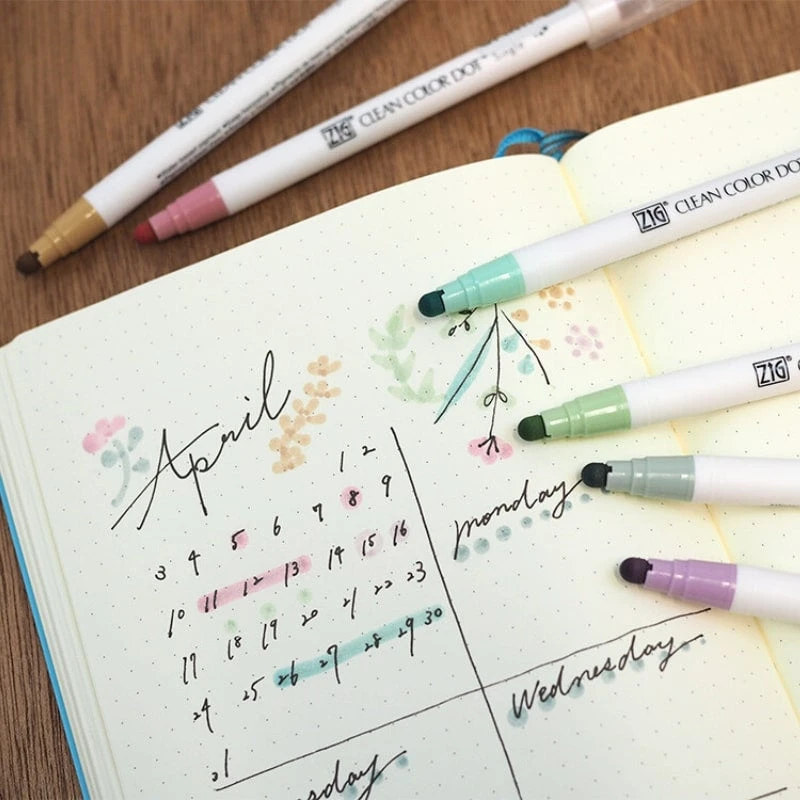 ZIG
ZIG® CLEAN COLOR DOT® Single
ZIG® CLEAN COLOR DO
ZIG®
April
1 2
3 4 5 6 7 8 9
10 11 12 13 14 15 16
17 18 19 20 21 22 23
24 25 26 27 28 29 30
31
monday
Wednesday
sday